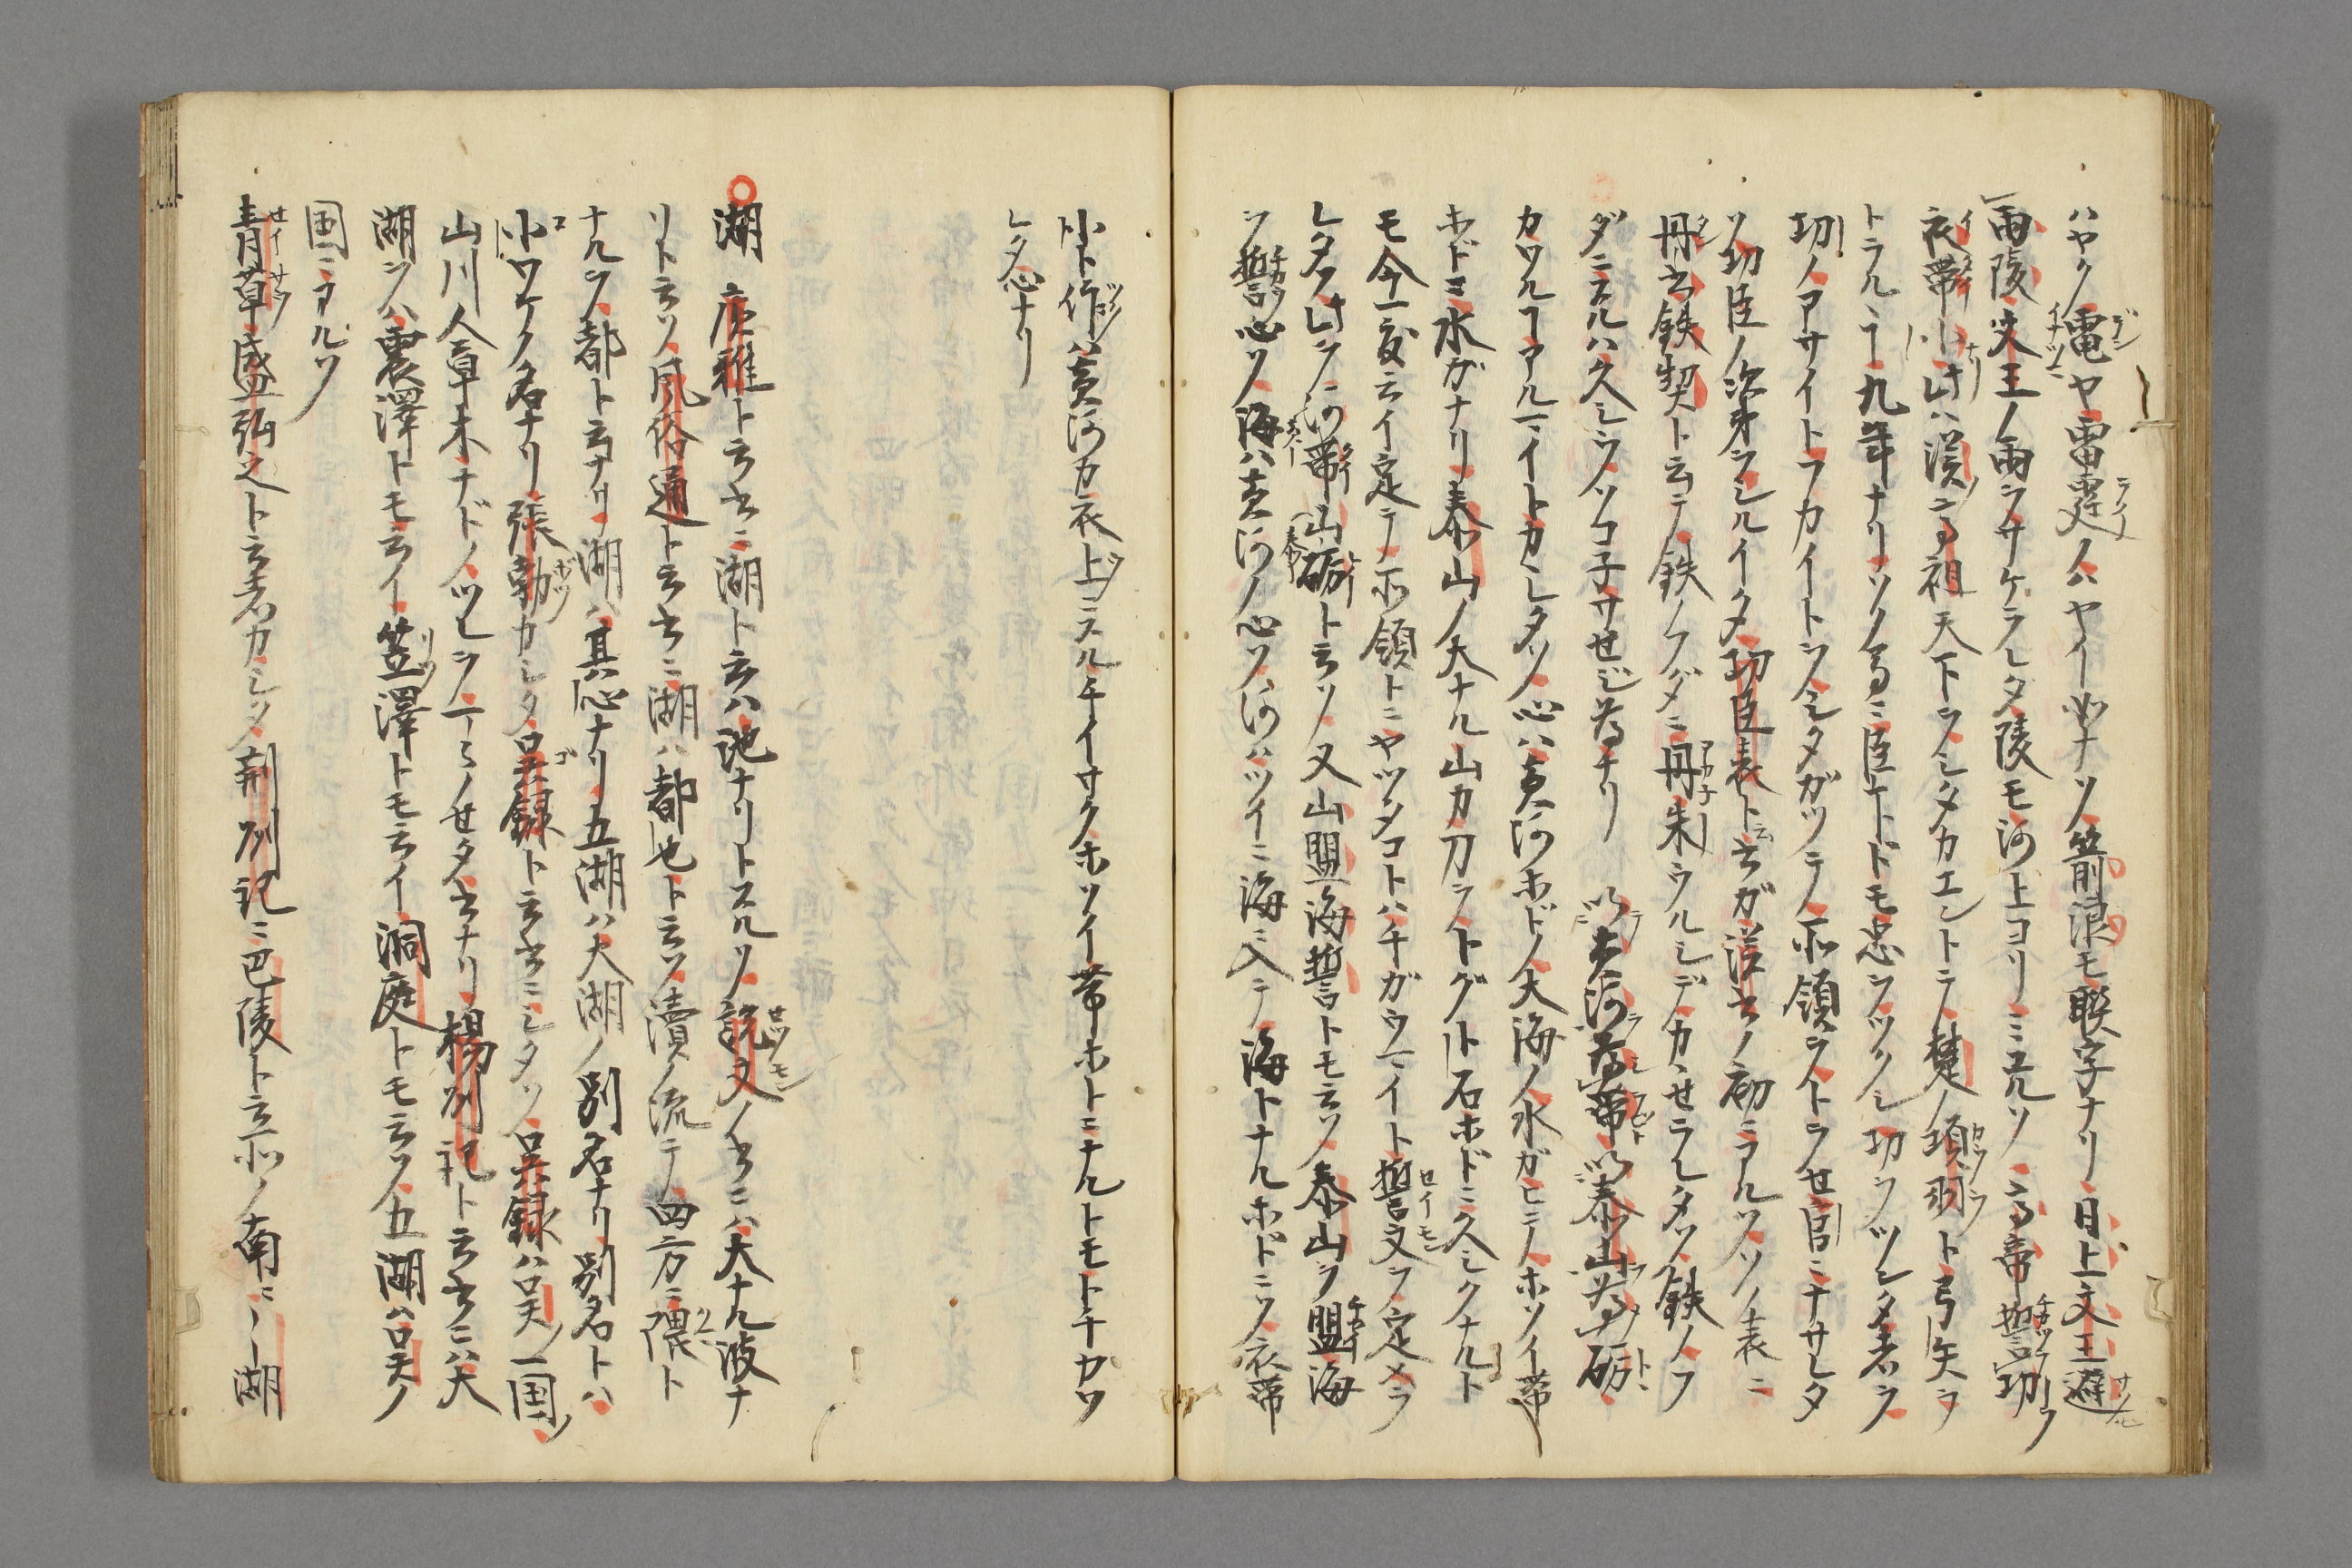 ハヤク電ヤ雷霆ノハヤイ如ナソ箭浪モ聯字ナリ日上文王避
雨陵文王ノ雨ヲサケラレタ陵モ河上ヨリミユルソ高帝誓功
衣帯小此ハ漢ノ高祖天下ヲシタカエントテ楚ノ項羽ト弓矢ヲ
トラル丁九年ナリソノ高ニ臣下トドモ忠ヲツクシ功ヲツンタ者ヲ
功ノアサイトフカイトヲシタガツテ所領ヲトラせ官ニナサレタ
ソ功臣ノ次第ヲシルイタ功臣表ト云書ガ漢書ノ初ニアルソソノ表ニ
丹書鉄契ト云テ鉄ノフダニ丹朱ウルシデカヽせラレタソ鉄ノフ
ダニスルハ久シウソコ子サせジ為ナリ 以黄河為帯以泰山為砺
カツル丁アルマイトカヽレタソ心ハ黄河ホドノ大海ノ水ガヒテホソイ帯
ホドヨ水ガナリ泰山ノ大ナル山カ刀ヲトグト石ホドニ久シクナルト
モ今一度云イ定テ所領トニヤツタコトハチガウマイト誓文ヲ定メラ
レタソ此ヲ河帯山砺ト云ソ又山盟海誓トモ云ソ泰山ヲ盟海
ヲ誓心ソ海ハ黄河ノ心ソ河ハツイニ海ニ入テ海トナルホドニソ衣帯
小ト作ハ黄河カ衣上ニスルチイサクホソイ帯ホトニナルトモトチカツ
レタ心ナリ
湖 广雅ト云書ニ湖ト云ハ池ナリトスルソ説文ノ書ニハ大ナル波ナ
リト云ソ風俗通ト云書ニ湖ハ都也ト云ソ瀆ノ流テ四方ニ隈ト
ナルヲ都ト云ナリ湖ハ其心ナリ五湖ハ大湖ノ別名ナリ別名トハ
小ワケノ名ナリ張勃カシタ呉録ト云書ニシタソ呉録ハ呉ノ一国ノ
山川人草木ナドノツヒヲ一丁ミノせタ書ナリ楊州記ト云書ニハ大
湖ヲハ震澤トモ云イ笠澤トモ云イ洞庭トモ云ソ五湖ハ呉ノ
国ニアルソ
青草盛弘之ト云者カシタ荊州記ニ巴陵ト云所ノ南ニ一湖